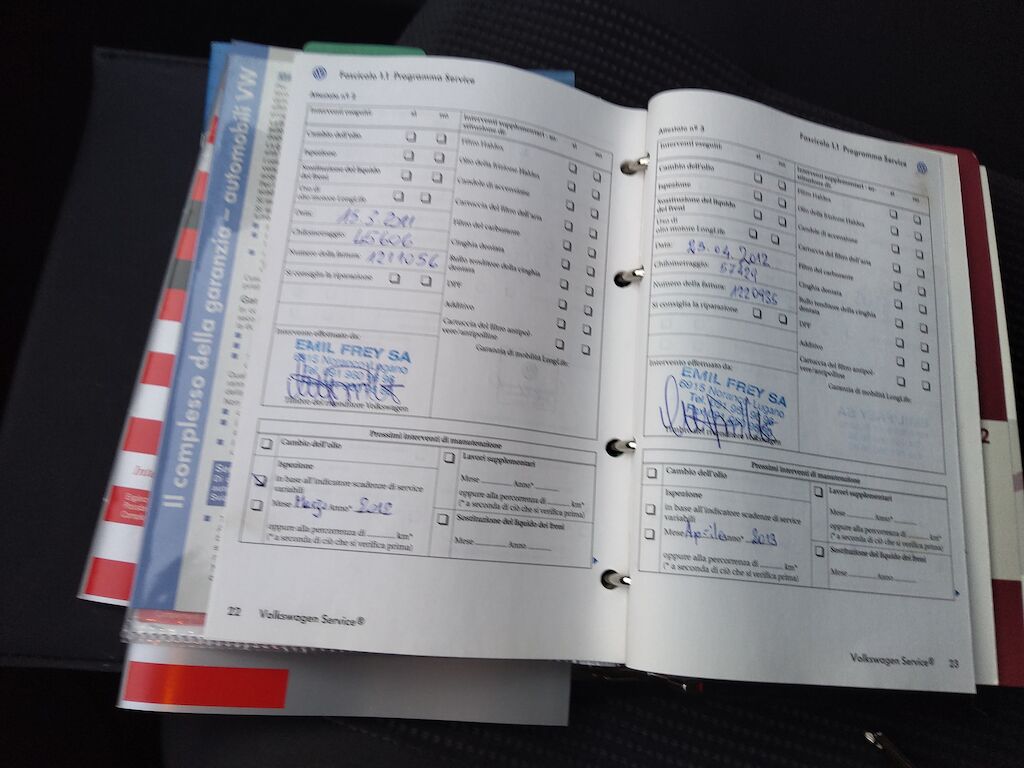 Il complesso della garanzia – automobili VW
Fascicolo 1.1 Programma Service
Attestato n° 2
Interventi eseguiti sì no
Cambio dell'olio
Ispezione
Sostituzione del liquido
dei freni
Uso di
olio motore LongLife
Data: 15.3.2011
Chilometraggio: 45606
Numero della fattura: 1211056
Si consiglia la riparazione
Intervento effettuato da:
EMIL FREY SA
6915 Noranco-Lugano
Timbro del rivenditore Volkswagen
Interventi supplementari - su
situazione di: sì no
Filtro Haldex
Olio della frizione Haldex
Candele di accensione
Cartuccia del filtro dell'aria
Filtro del carburante
Cinghia dentata
Rullo tenditore della cinghia
dentata
DPF
Additivo
Cartuccia del filtro antipol-
vere/antipolline
Garanzia di mobilità LongLife:
Prossimi interventi di manutenzione
Cambio dell'olio
Ispezione
in base all'indicatore scadenze di service
variabili
Mese Marzo Anno* 2012
oppure alla percorrenza di km*
(* a seconda di ciò che si verifica prima)
Lavori supplementari
Mese Anno*
oppure alla percorrenza di km*
(* a seconda di ciò che si verifica prima)
Sostituzione del liquido dei freni
Mese Anno
22 Volkswagen Service®
Fascicolo 1.1 Programma Service
Attestato n° 3
Interventi eseguiti sì no
Cambio dell'olio
Ispezione
Sostituzione del liquido
dei freni
Uso di
olio motore LongLife
Data: 23.04.2012
Chilometraggio: 57429
Numero della fattura: 1220935
Si consiglia la riparazione
Intervento effettuato da:
EMIL FREY SA
6915 Noranco-Lugano
Interventi supplementari - su
situazione di: sì no
Filtro Haldex
Olio della frizione Haldex
Candele di accensione
Cartuccia del filtro dell'aria
Filtro del carburante
Cinghia dentata
Rullo tenditore della cinghia
dentata
DPF
Additivo
Cartuccia del filtro antipol-
vere/antipolline
Garanzia di mobilità LongLife:
Prossimi interventi di manutenzione
Cambio dell'olio
Ispezione
in base all'indicatore scadenze di service
variabili
Mese Aprile Anno* 2013
oppure alla percorrenza di km*
(* a seconda di ciò che si verifica prima)
Lavori supplementari
Mese Anno*
oppure alla percorrenza di km*
(* a seconda di ciò che si verifica prima)
Sostituzione del liquido dei freni
Mese Anno
Volkswagen Service® 23